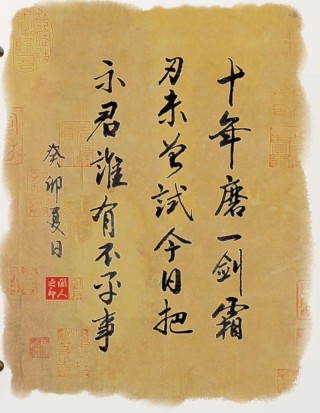 十年磨一剑霜
刃未曾試今日把
示君誰有不平事
癸卯夏日